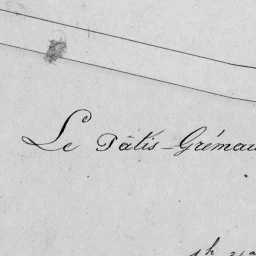 Le Pâtis-Grémau